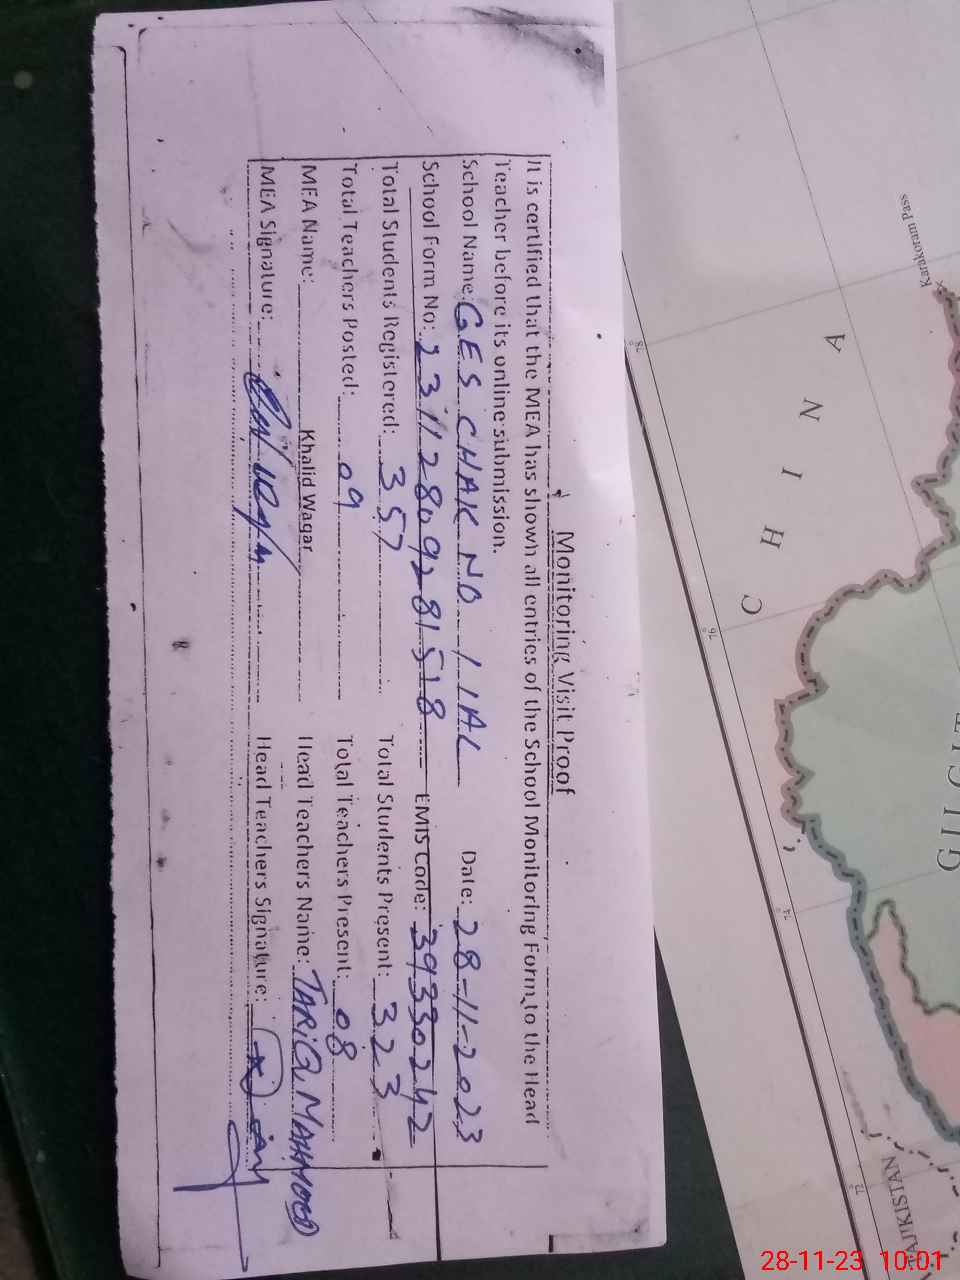 Monitoring Visit Proof
It is certified that the MEA has shown all entries of the School Monitoring Form to the Head
Teacher before its online submission.
School Name: GES CHAK NO 11AL Date: 28-11-2023
School Form No: 23112809281518 EMIS Code: 39330242
Total Students Registered: 357 Total Students Present: 323
Total Teachers Posted: 09 Total Teachers Present: 08
MEA Name: Khalid Waqar Head Teachers Name: TARIQ MAHMOOD
MEA Signature: Head Teachers Signature:
Karakoram Pass
CHINA
GILGIT
78°
76°
74°
72°
28-11-23 10:01